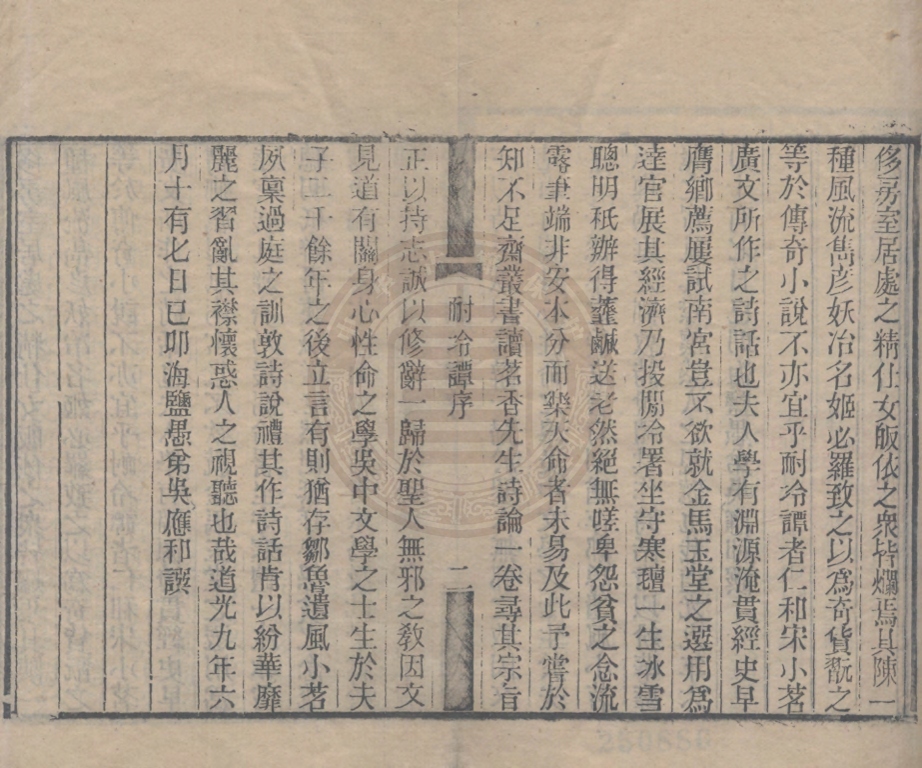 侈房室居處之精仕女皈依之衆皆爛焉具陳一
種風流雋彦妖冶名姬必羅致之以爲奇貨翫之
等於傳奇小說不亦宜乎耐冷譚者仁和宋小茗
廣文所作之詩話也夫人學有淵源淹貫經史早
膺鄉薦屢試南宮豈不欲就金馬玉堂之選用爲
達官展其經濟乃投閒冷署坐守寒氊一生冰雪
聰明秖辦得虀鹹送老然絕無嗟卑怨貧之念流
露筆端非安本分而樂天命者未易及此予嘗於
知不足齋叢書讀茗香先生詩論一卷尋其宗旨
耐冷譚序 二
正以持志誠以修辭一歸於聖人無邪之敎因文
見道有關身心性命之學吳中文學之士生於夫
子二千餘年之後立言有則猶存鄒魯遺風小茗
夙稟過庭之訓敦詩說禮其作詩話肯以紛華靡
麗之習亂其襟懷惑人之視聽也哉道光九年六
月十有七日己卯海鹽愚弟吳應和譔